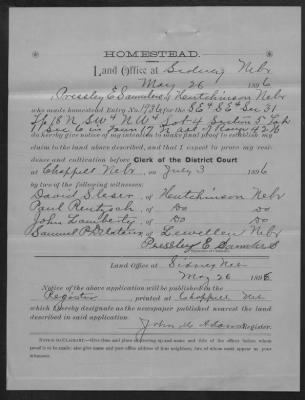 HOMESTEAD.
Land Office at Sidney Nebr
May 26 1896
I, Pressley E Saunders of Hutchinson Nebr
who made homestead Entry No. for the SE4 SE4 Sec 31
Tp 18 N SW4 NW4 Lot 4 Section 5 Lot
1 Sec 6 in Town 17 N as of Range 42 W
do hereby give notice of my intention to make final proof to establish my
claim to the land above described, and that I expect to prove my resi-
dence and cultivation before Clerk of the District Court
at Chappell Nebr on July 3 1896
by two of the following witnesses:
David of Hutchinson Nebr
Paul of Do Do
John Lamberty of Do Do
Samuel P of Lewellen Nebr
Pressley E Saunders
Land Office at Sidney Neb
May 26 1896
Notice of the above application will be published in the
Register, printed at Chappell Neb
which I hereby designate as the newspaper published nearest the land
described in said application.
John M Adams Register.
NOTICE TO CLAIMANT:—Give time and place of proving up and name and title of the officer before whom
proof is to be made; also give name and post office address of four neighbors, two of whom must appear as your
witnesses.